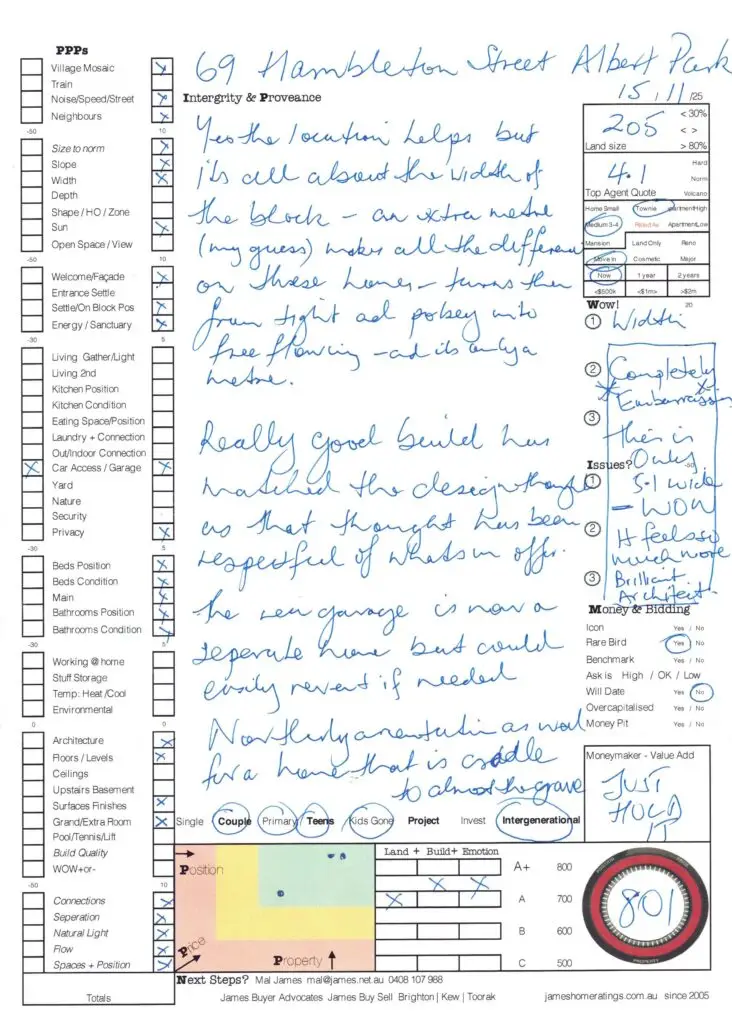 69 Hambleton Street Albert Park
15/11/25
PPPs
Village Mosaic
Train
Noise/Speed/Street
Neighbours
-50 10
Size to norm
Slope
Width
Depth
Shape / HO / Zone
Sun
Open Space / View
-50 10
Welcome/Façade
Entrance Settle
Settle/On Block Pos
Energy / Sanctuary
-30 5
Living Gather/Light
Living 2nd
Kitchen Position
Kitchen Condition
Eating Space/Position
Laundry + Connection
Out/Indoor Connection
Car Access / Garage
Yard
Nature
Security
Privacy
-30 5
Beds Position
Beds Condition
Main
Bathrooms Position
Bathrooms Condition
-30 5
Working @ home
Stuff Storage
Temp: Heat /Cool
Environmental
0 0
Architecture
Floors / Levels
Ceilings
Upstairs Basement
Surfaces Finishes
Grand/Extra Room
Pool/Tennis/Lift
Build Quality
WOW+or-
-50 10
Connections
Seperation
Natural Light
Flow
Spaces + Position
Totals
Intergrity & Proveance
Yes the location helps but
its all about the width of
the block - an extra metre
(my guess) makes all the difference
on these homes - turns them
from tight and pokey into
free flowing - and its only a
metre.
Really good build has
matched the design thought
as that thought has been
respectful of whats on offer.
The rear garage is now a
seperate home but could
easily revert if needed
Northerly orientation as well
for a home that is cradle
to almost the grave
Single Couple Primary Teens Kids Gone Project Invest Intergenerational
205
< 30%
< >
Land size > 80%
4.1
Hard
Norm
Top Agent Quote Volcano
Home Small Townie ApartmentHigh
Medium 3-4 Rated As ApartmentLow
Mansion Land Only Reno
Move in Cosmetic Major
Now 1 year 2 years
<$500k <$1m> >$2m
Wow! 20
1 Width
2 Completely
Embarrassing
3
This is
Issues? Only -50
1 5.1 wide
- WOW
2 It feels so
much more
3 Brilliant
Architect
Money & Bidding
Icon Yes / No
Rare Bird Yes / No
Benchmark Yes / No
Ask is High / OK / Low
Will Date Yes / No
Overcapitalised Yes / No
Money Pit Yes / No
Moneymaker - Value Add
JUST
HOLD
IT
Position
Price
Property
Land + Build + Emotion
A+ 800
A 700
B 600
C 500
801
PROPERTY
Next Steps? Mal James mal@james.net.au 0408 107 988
James Buyer Advocates James Buy Sell Brighton | Kew | Toorak jameshomeratings.com.au since 2005